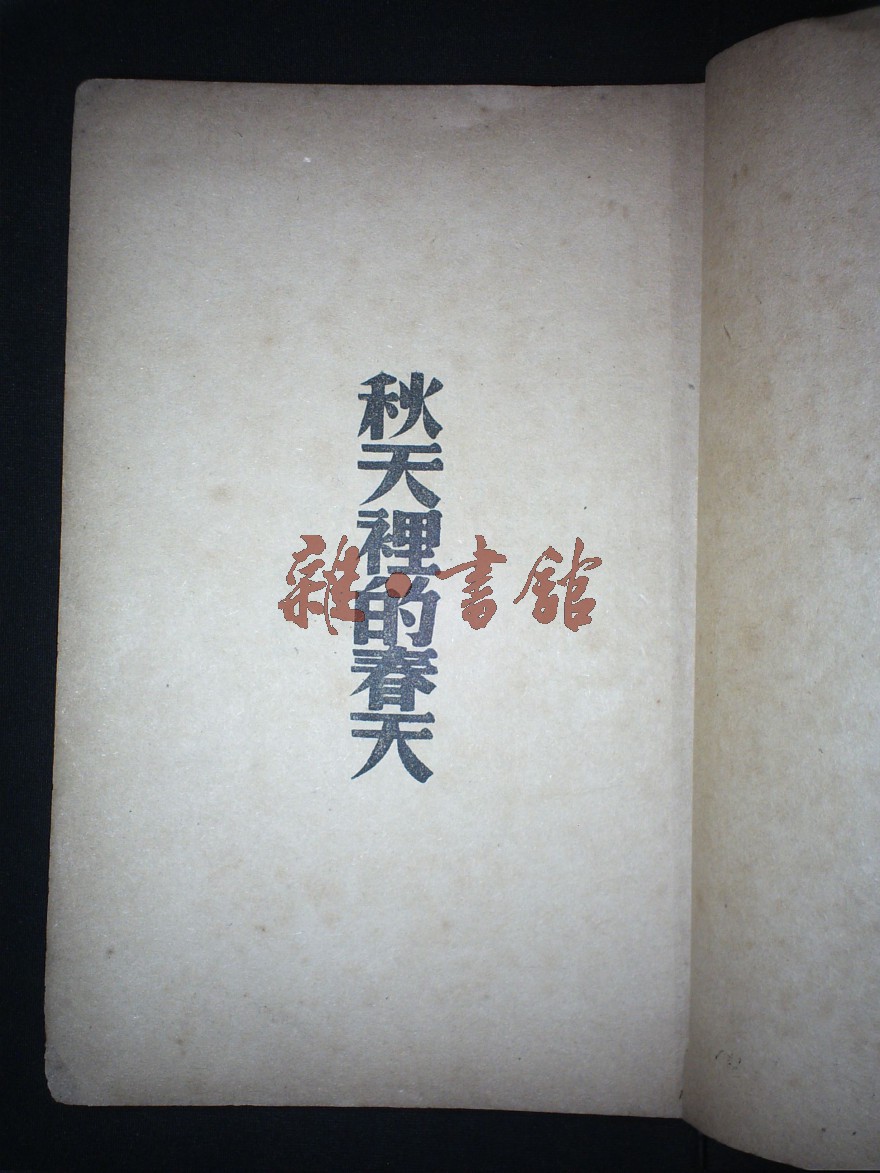 秋天裡的春天
雜·書館